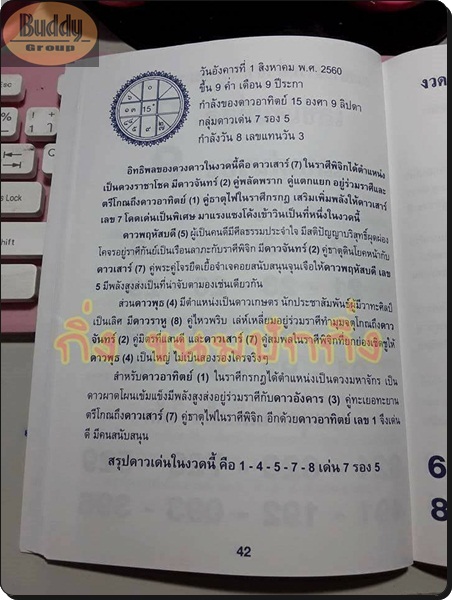 Buddy
Group
วันอังคารที่ 1 สิงหาคม พ.ศ. 2560
ขึ้น 9 ค่ำ เดือน 9 ปีระกา
กำลังของดาวอาทิตย์ 15 องศา 9 ลิปดา
กลุ่มดาวเด่น 7 รอง 5
กำลังวัน 8 เลขแทนวัน 3
อิทธิพลของดวงดาวในงวดนี้คือ ดาวเสาร์ (7) ในราศีพิจิกได้ตำแหน่ง
เป็นดวงราชาโชค มีดาวจันทร์ (2) คู่พลัดพราก คู่แตกแยก อยู่ร่วมราศีและ
ตรีโกณถึงดาวอาทิตย์ (1) คู่ธาตุไฟในราศีกรกฎ เสริมเพิ่มพลังให้ดาวเสาร์
เลข 7 โดดเด่นเป็นพิเศษ มาแรงแซงโค้งเข้าวินเป็นที่หนึ่งในงวดนี้
ดาวพฤหัสบดี (5) ผู้เป็นคนดีมีศีลธรรมประจำใจ มีสติปัญญาบริสุทธิ์ผุดผ่อง
โคจรอยู่ราศีกันย์เป็นเรือนลาภะกับราศีพิจิก มีดาวจันทร์ (2) คู่ธาตุดินโยคหน้ากับ
ดาวเสาร์ (7) คู่พระคู่โจรยืดเยื้อจำเจคอยสนับสนุนจุนเจือให้ดาวพฤหัสบดี เลข
5 มีพลังสูงส่งเป็นที่น่าจับตามองเช่นเดียวกัน
ส่วนดาวพุธ (4) มีตำแหน่งเป็นดาวเกษตร นักประชาสัมพันธ์ผู้มีวาทะศิลป์
เป็นเลิศ มีดาวราหู (8) คู่ไหวพริบ เล่ห์เหลี่ยมอยู่ร่วมราศีทำมุมจตุโกณถึงดาว
จันทร์ (2) คู่มิตรที่แสนดี และดาวเสาร์ (7) คู่สมพลในราศีพิจิกที่ยกย่องเชิดชูให้
ดาวพุธ (4) เป็นใหญ่ ไม่เป็นสองรองใครจริงๆ
สำหรับดาวอาทิตย์ (1) ในราศีกรกฎได้ตำแหน่งเป็นดวงมหาจักร เป็น
ดาวผาดโผนเข้มแข็งมีพลังสูงส่งอยู่ร่วมราศีกับดาวอังคาร (3) คู่ทะเยอทะยาน
ตรีโกณถึงดาวเสาร์ (7) คู่ธาตุไฟในราศีพิจิก อีกด้วยดาวอาทิตย์ เลข 1 จึงเด่น
ดี มีคนสนับสนุน
สรุปดาวเด่นในงวดนี้ คือ 1 - 4 - 5 - 7 - 8 เด่น 7 รอง 5
42
งวด
6
8
Shift